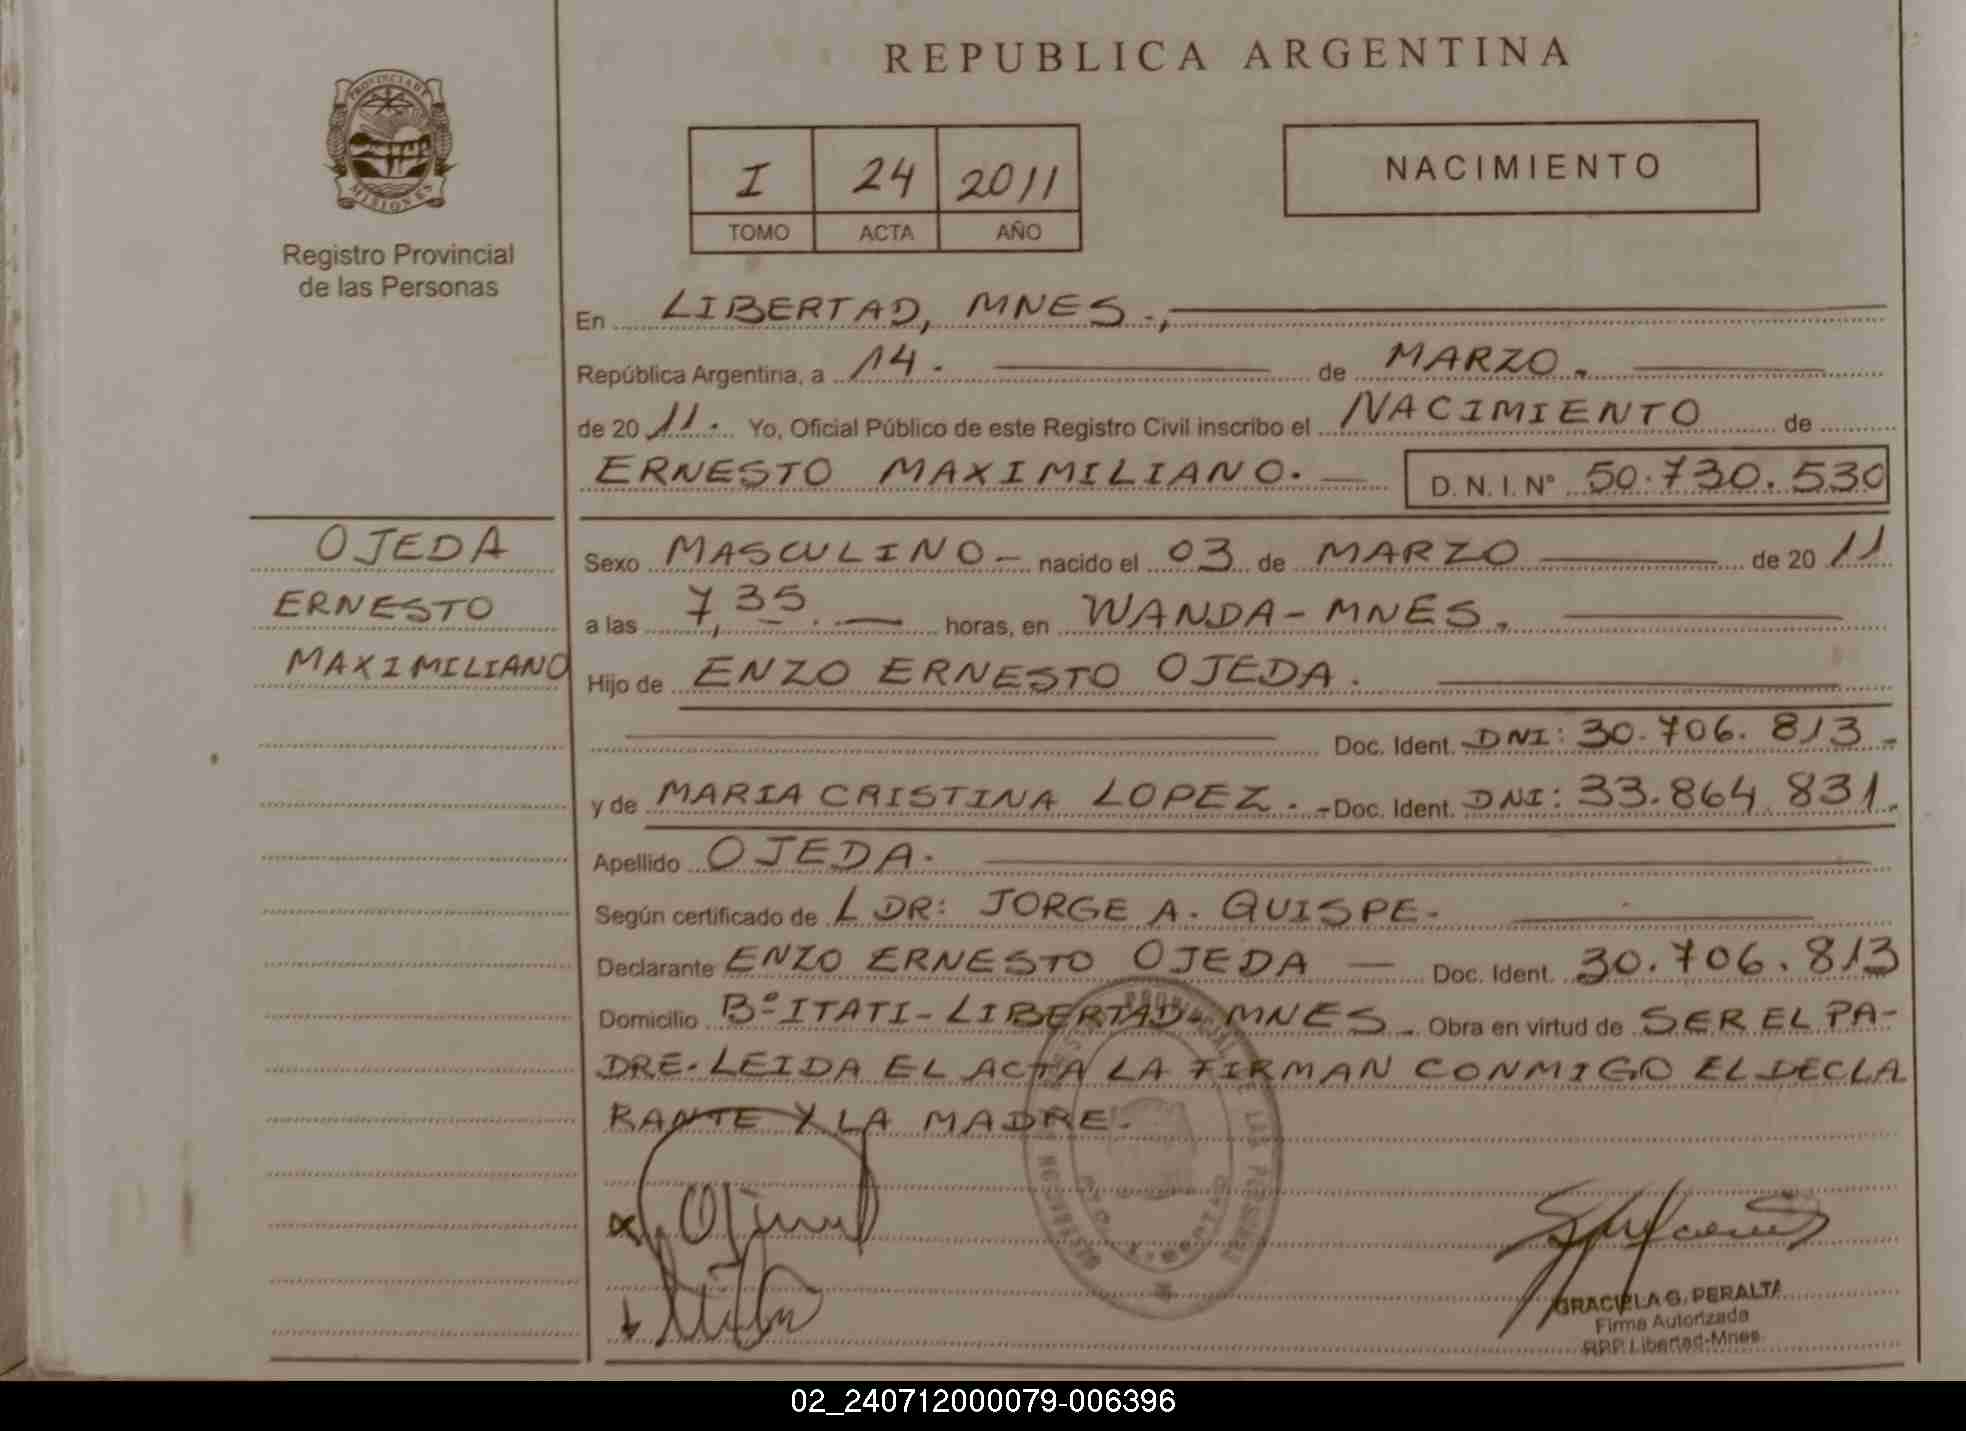 REPUBLICA ARGENTINA
PROVINCIA DE
MISIONES
Registro Provincial
de las Personas
I 24 2011
TOMO ACTA AÑO
NACIMIENTO
En LIBERTAD, MNES.,
República Argentina, a 14. de MARZO.
de 20 11. Yo, Oficial Público de este Registro Civil inscribo el NACIMIENTO de
ERNESTO MAXIMILIANO. — D. N. I. Nº 50.730.530
OJEDA
ERNESTO
MAXIMILIANO
Sexo MASCULINO — nacido el 03 de MARZO de 20 11
a las 7,35. — horas, en WANDA - MNES.
Hijo de ENZO ERNESTO OJEDA.
Doc. Ident. DNI: 30.706.813.-
y de MARIA CRISTINA LOPEZ. - Doc. Ident. DNI: 33.864.831.
Apellido OJEDA.
Según certificado de DR: JORGE A. QUISPE.
Declarante ENZO ERNESTO OJEDA — Doc. Ident. 30.706.813
Domicilio Bº ITATI - LIBERTAD - MNES. Obra en virtud de SER EL PA-
DRE. LEIDA EL ACTA LA FIRMAN CONMIGO EL DECLA
RANTE Y LA MADRE.
GRACIELA G. PERALTA
Firma Autorizada
RPP Libertad-Mnes.
02_240712000079-006396